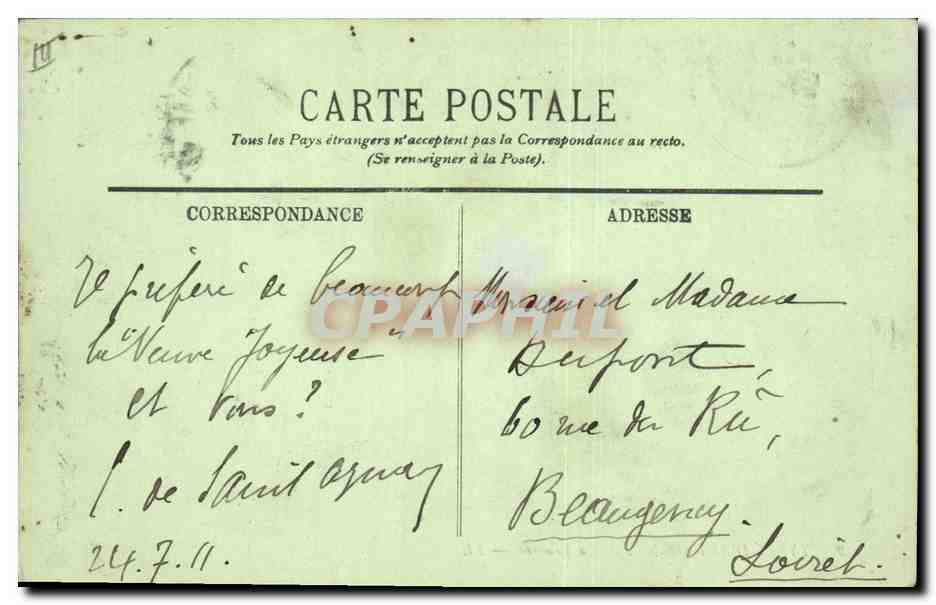 CARTE POSTALE
Tous les Pays étrangers n'acceptent pas la Correspondance au recto.
(Se renseigner à la Poste).
CORRESPONDANCE
Je préfère de beaucoup
la "Veuve Joyeuse"
et vous?
de Saint Agnan
24.7.11.
ADRESSE
Monsieur et Madame
Dupont,
60 rue du Rû,
Beaugency.
Loiret.
CPAPHIL